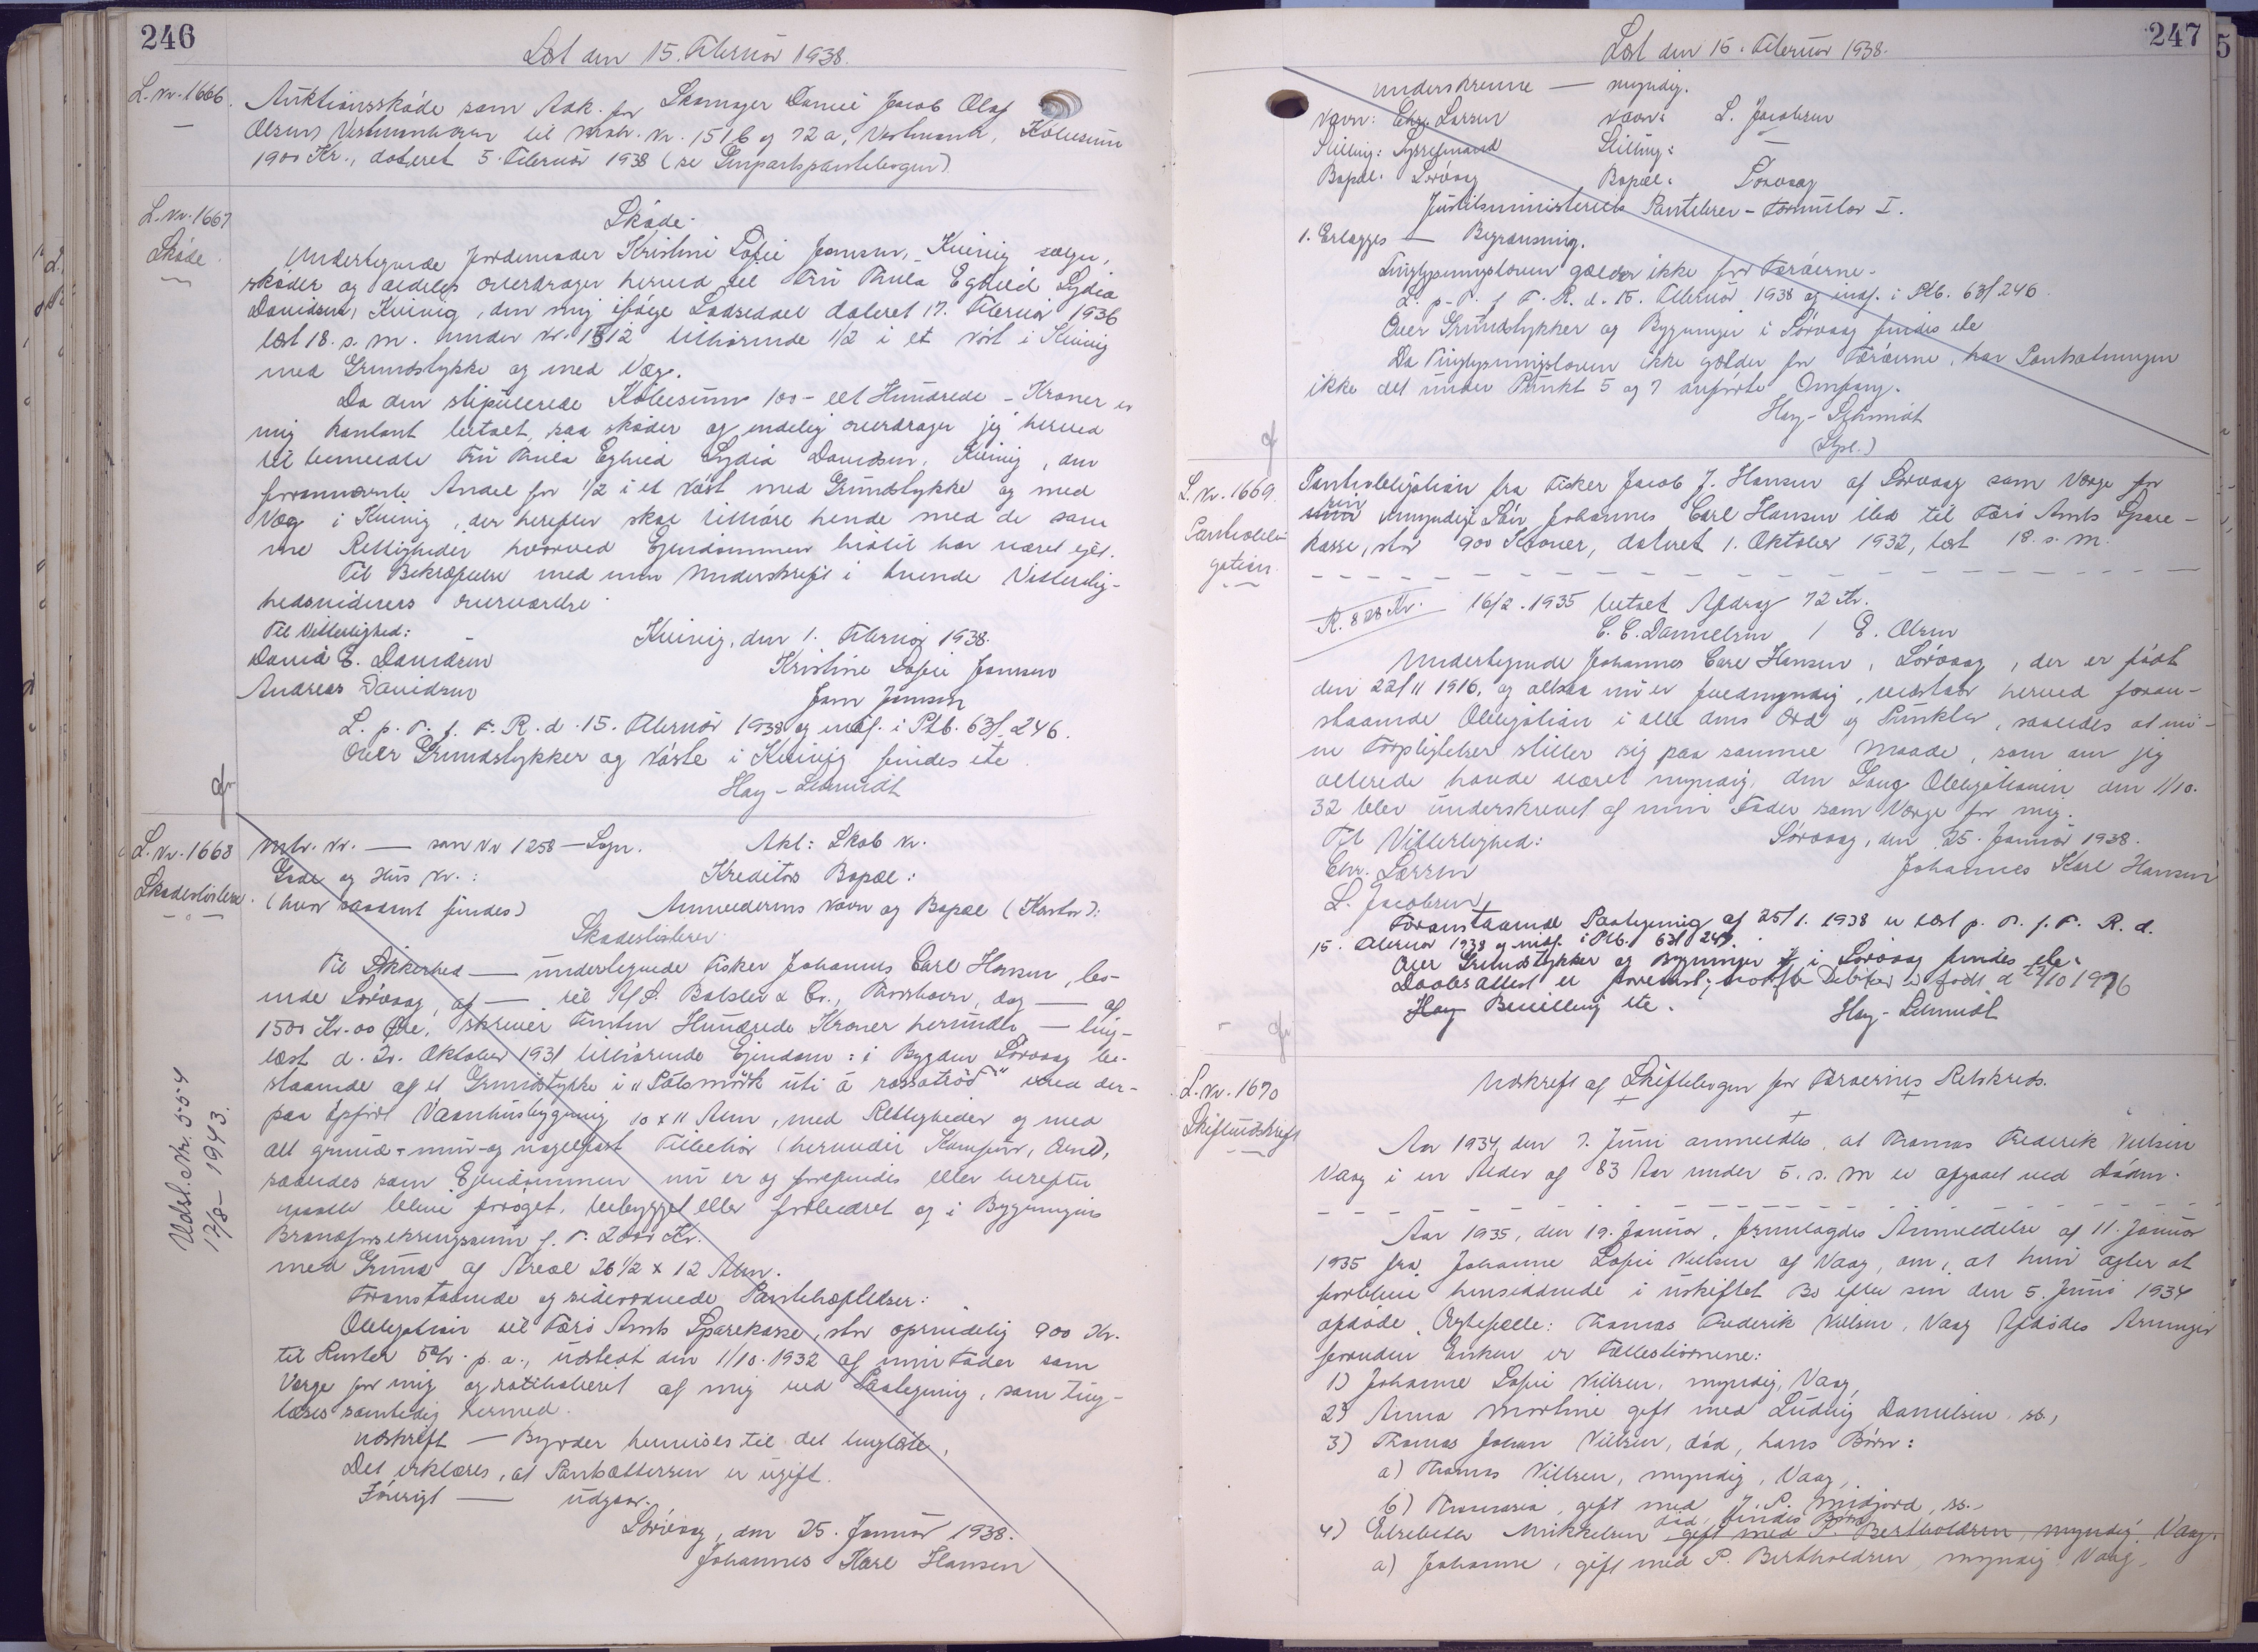 246
Læst den 15. Februar 1938.
L. Nr. 1666.
Auktionsskøde som Adk. for Skomager Daniel Jacob Olaf
Olsen, Vestmanhavn til Matr. Nr. 151b og 72a, Vestmanh., Købesum
1900 Kr., dateret 5. Februar 1938 (se Genpartspantebogen)
L. Nr. 1667
Skøde.
Skøde.
Undertegnede Jordemoder Kristine Sofie Jensen, Kvivig sælger,
skøder og aldeles overdrager herved til Fru Thula Eghild Lydia
Davidsen, Kvivig, den mig ifølge Lodseddel dateret 17. Februar 1936
læst 18. s. m. under Nr. 1512 tilhørende 1/2 i et Nøst i Kvivig
med Grundstykke og med Væg.
Da den stipulerede Købesum 100 - eet Hundrede - Kroner er
mig kontant betalt, saa skøder og endelig overdrager jeg herved
til bemeldte Fru Thula Eghild Lydia Davidsen, Kvivig, den
fornævnte Andel for 1/2 i et Nøst med Grundstykke og med
Væg i Kvivig, der herefter skal tilhøre hende med de sam
me Rettigheder hvorved Ejendommen hidtil har været ejet.
Til Bekræftelse med min Underskrift i tvende Vitterlig-
hedsvidners Overværelse.
Til Vitterlighed:
Kvivig, den 1. Februar 1938.
David E. Davidsen
Kristine Sofie Jensen
Andreas Davidsen
L. p. T. f. F. R. d. 15. Februar 1938 og indf. i Ptb. 63f. 246.
Over Grundstykker og Nøste i Kvivig findes ete
Hoy-Schmidt
L. Nr. 1668
Skadesløsbrev.
Mtr. Nr. — som Nr 1258 — Sogn.
Akt: Skab Nr.
Gade og Hus Nr.:
Kreditors Bopæl:
(hvor saadant findes)
Anmelderens Navn og Bopæl (Kontor):
Skadesløsbrev.
Til Sikkerhed — undertegnede Fisker Johannes Carl Hansen, bo-
ende Sørvaag, af — til A/S. Balslev & Co., Thorshavn, dag — af
1500 Kr. 00 Øre, skriver Femten Hundrede Kroner herunder — ting-
læst d. 20. Oktober 1931 tilhørende Ejendom: i Bygden Sørvaag be-
staaende af et Grundstykke i "Pálsmørk uti á rossatrøð" med der-
paa opført Vaanhusbygning 10 x 11 Alen, med Rettigheder og med
alt grund- mur- og nagelfast Tilbehør (herunder Komfur, Ovne),
saaledes som Ejendommen nu er og forefindes eller herefter
maatte blive forøget, bebygget eller forbedret og i Bygningens
Brandforsikringssum f. T. 2000 Kr.
med Grund af Areal 26 1/2 x 12 Alen.
Foranstaaende og sideordnede Pantehæftelser:
Obligation til Færø Amts Sparekasse, stor oprindelig 900 Kr.
til Renter 5% p. a., udstedt den 1/10. 1932 af min Fader som
Værge for mig og ratihaberet af mig ved Paategning, som ting-
læses samtidig hermed.
Udskrift — Byrder henvises til det tinglæste,
Det erklæres, at Pantsætteren er ugift.
Iøvrigt — udgaar.
Sørvaag, den 25. Januar 1938.
Johannes Karl Hansen
Udsl. Nr. 554
12/8 - 1943.
247
Læst den 15. Februar 1938.
underskrevne — myndig.
Navn: Chr. Larsen
Navn: L. Jacobsen
Stilling: Sysselmand
Stilling: —
Bopæl: Sørvaag
Bopæl: Sørvaag
Justitsministeriets Pantebrev - Formular I.
1. Erlægges — Begrænsning.
Tinglysningsloven gælder ikke for Færøerne.
L. p. T. f. F. R. d. 15. Februar 1938 og indf. i Ptb. 63f 246.
Over Grundstykker og Bygninger i Sørvaag findes ete
Da Tinglysningsloven ikke gælder for Færøerne, har Pantsætningen
ikke det under Punkt 5 og 7 anførte Omfang.
Hoy-Schmidt
(Stpl.)
L. Nr. 1669.
Pantobli-
gation.
Pantobligation fra Fisker Jacob J. Hansen af Sørvaag som Værge for
sin umyndige Søn Johannes Carl Hansen ibd til Færø Amts Spare-
kasse, stor 900 Kroner, dateret 1. Oktober 1932, læst 18. s. m.
R. 828 Kr. 16/2. 1935 betalt Afdrag 72 Kr.
C. C. Danielsen / E. Olsen
Undertegnede Johannes Carl Hansen, Sørvaag, der er født
den 22/11 1916, og altsaa nu er fuldmyndig, vedstaar herved foran-
staaende Obligation i alle dens Ord og Punkter, saaledes at mi-
ne Forpligtelser stiller sig paa samme Maade, som om jeg
allerede havde været myndig, den Gang Obligationen den 1/10.
32 blev underskrevet af min Fader som Værge for mig.
Til Vitterlighed:
Sørvaag, den 25. Januar 1938.
Chr. Larsen
Johannes Karl Hansen
L. Jacobsen,
Foranstaaende Paategning af 25/1. 1938 er læst p. T. f. F. R. d.
15. Februar 1938 og indf. i Ptb. 63f 247.
Over Grundstykker og Bygninger i Sørvaag findes ete.
Daabsattest er forevist, hvorefter Debitor er født d 22/10 1916
Bevilling ete.
Hoy-Schmidt
L. Nr. 1670
Skifteudskrift
Udskrift af Skiftebogen for Færøernes Retskreds.
Aar 1934, den 7. Juni anmeldtes, at Thomas Frederik Nielsen
Vaag i en Alder af 83 Aar under 5. s. M er afgaaet ved Døden.
Aar 1935, den 19. Januar, fremlagdes Anmeldelse af 11. Januar
1935 fra Johanne Sofie Nielsen af Vaag, om, at hun agter at
forblive hensiddende i uskiftet Bo efter sin den 5. Juni 1934
afdøde Ægtefælle: Thomas Frederik Nielsen, Vaag Afdødes Arvinger
foruden Enken er Fællesbørnene:
1) Johanne Sofie Nielsen, myndig, Vaag,
2) Anna Martine gift med Ludvig Danielsen, ss.,
3) Thomas Johan Nielsen, død, hans Børn:
a) Thomas Nielsen, myndig, Vaag,
b) Thomasia, gift med J. P. Midjord, ss.,
4) Elsebeth Mikkelsen død, findes Børn gift med P. Bertholdsen, myndig Vaag.
a) Johanne, gift med P. Bertholdsen, myndig Vaag,